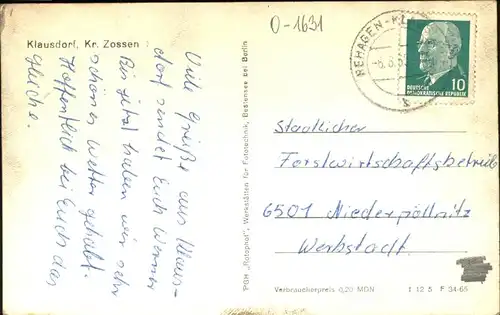 Klausdorf, Kr. Zossen
O-1631
REHAGEN-KL
-6.8.
DEUTSCHE
DEMOKRATISCHE REPUBLIK
10
Viele Grüße aus Klaus-
dorf sendet Euch Werner
Bis jetzt haben wir sehr
schönes Wetter gehabt.
Hoffentlich bei Euch das
gleiche.
PGH „Rotophot", Werkstätten für Fototechnik, Bestensee bei Berlin
Staatlicher
Forstwirtschaftsbetrieb
6501 Niederpöllnitz
Werbstadt
Verbraucherpreis 0,20 MDN
I 12 5 F 34-65